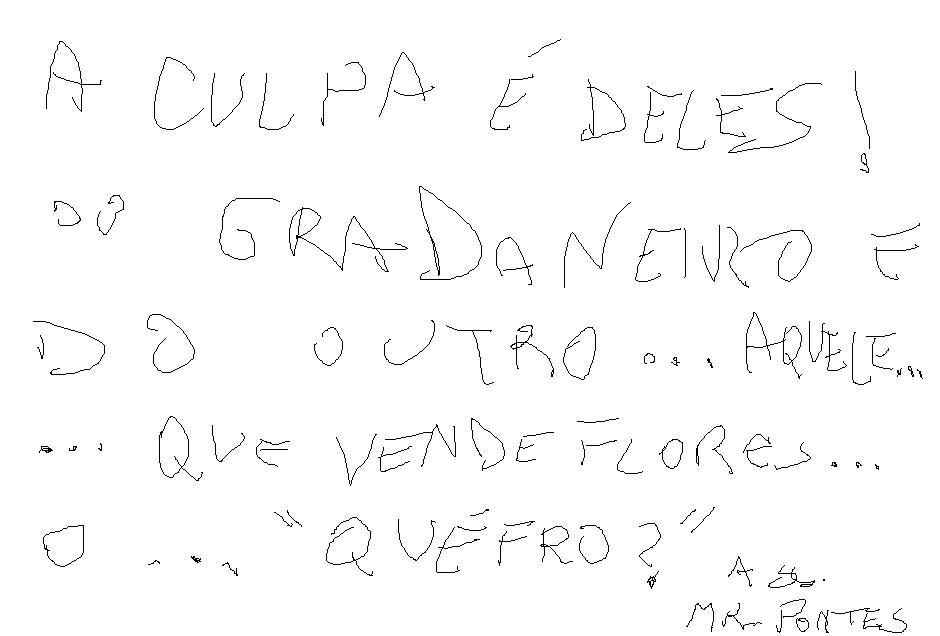 A CULPA É DELES!
DO GRADANEIRO E
DO OUTRO... AQUELE...
... QUE VENDE FLORES...
O ... "QUÉFRO?"
MR PONTES